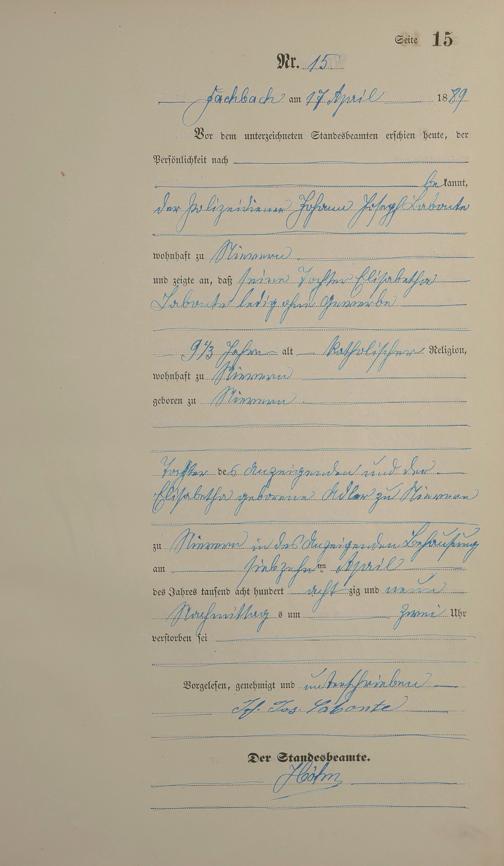 Seite 15
Nr. 15
Fachbach am 17 April 1889
Vor dem unterzeichneten Standesbeamten erschien heute, der
Persönlichkeit nach
bekannt,
der Polizeidiener Johann Joseph Labonte
wohnhaft zu Nievern
und zeigte an, daß seine Tochter Elisabetha
Labonte ledig ohne Gewerbe
9 1/3 Jahre alt katholischer Religion,
wohnhaft zu Nievern
geboren zu Nievern
Tochter des Anzeigenden und der
Elisabetha geborene Adler zu Nievern
zu Nievern in des Anzeigenden Behausung
am siebzehnten April
des Jahres tausend acht hundert achtzig und neun
Nachmittags um zwei Uhr
verstorben sei
Vorgelesen, genehmigt und unterschrieben
Jos. Labonte
Der Standesbeamte.